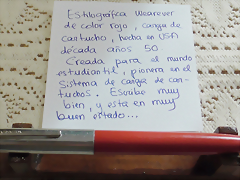 Estilográfica Wearever
de color rojo, carga de
cartucho, hecha en USA
década años 50
Creada para el mundo
estudiantil, pionera en el
Sistema de carga de car-
tuchos. Escribe muy
bien, y esta en muy
buen estado...